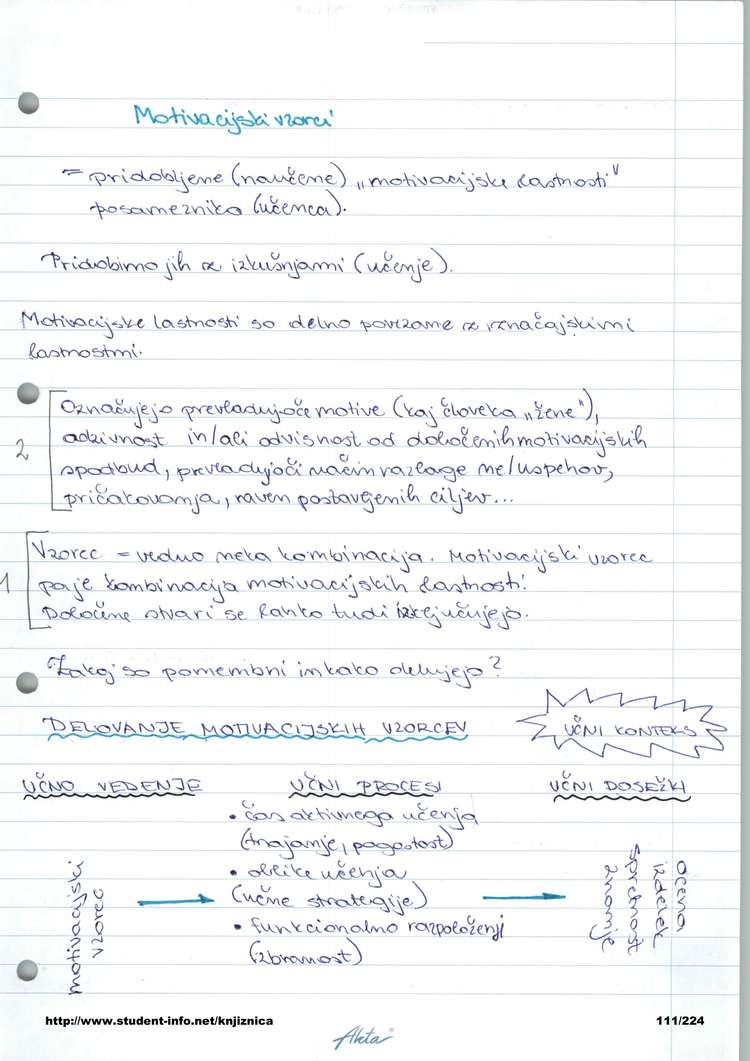 Motivacijski vzorci
= pridobljene (naučene) „motivacijske lastnosti"
posameznika (učenca).
Pridobimo jih z izkušnjami (učenje).
Motivacijske lastnosti so delno povezane z značajskimi
lastnostmi.
Označujejo prevladujoče motive (kaj človeka „žene"),
2
in/ali odvisnost od določenih motivacijskih
spodbud, prevladujoči način razlage ne/uspehov,
pričakovanja, raven postavljenih ciljev...
Vzorec = vedno neka kombinacija. Motivacijski vzorec
1 pa je kombinacija motivacijskih lastnosti.
Določene stvari se lahko tudi izključujejo.
Zakaj so pomembni in kako delujejo?
DELOVANJE MOTIVACIJSKIH VZORCEV
UČNI KONTEKS
UČNO VEDENJE
UČNI PROCESI
UČNI DOSEŽKI
motivacijski
vzorec
• čas aktivnega učenja
(trajanje, pogostost)
• oblike učenja
(učne strategije)
• funkcionalno razpoloženji
(zbranost)
ocena
izdelek
spretnost
znanje
http://www.student-info.net/knjiznica
111/224
Akta